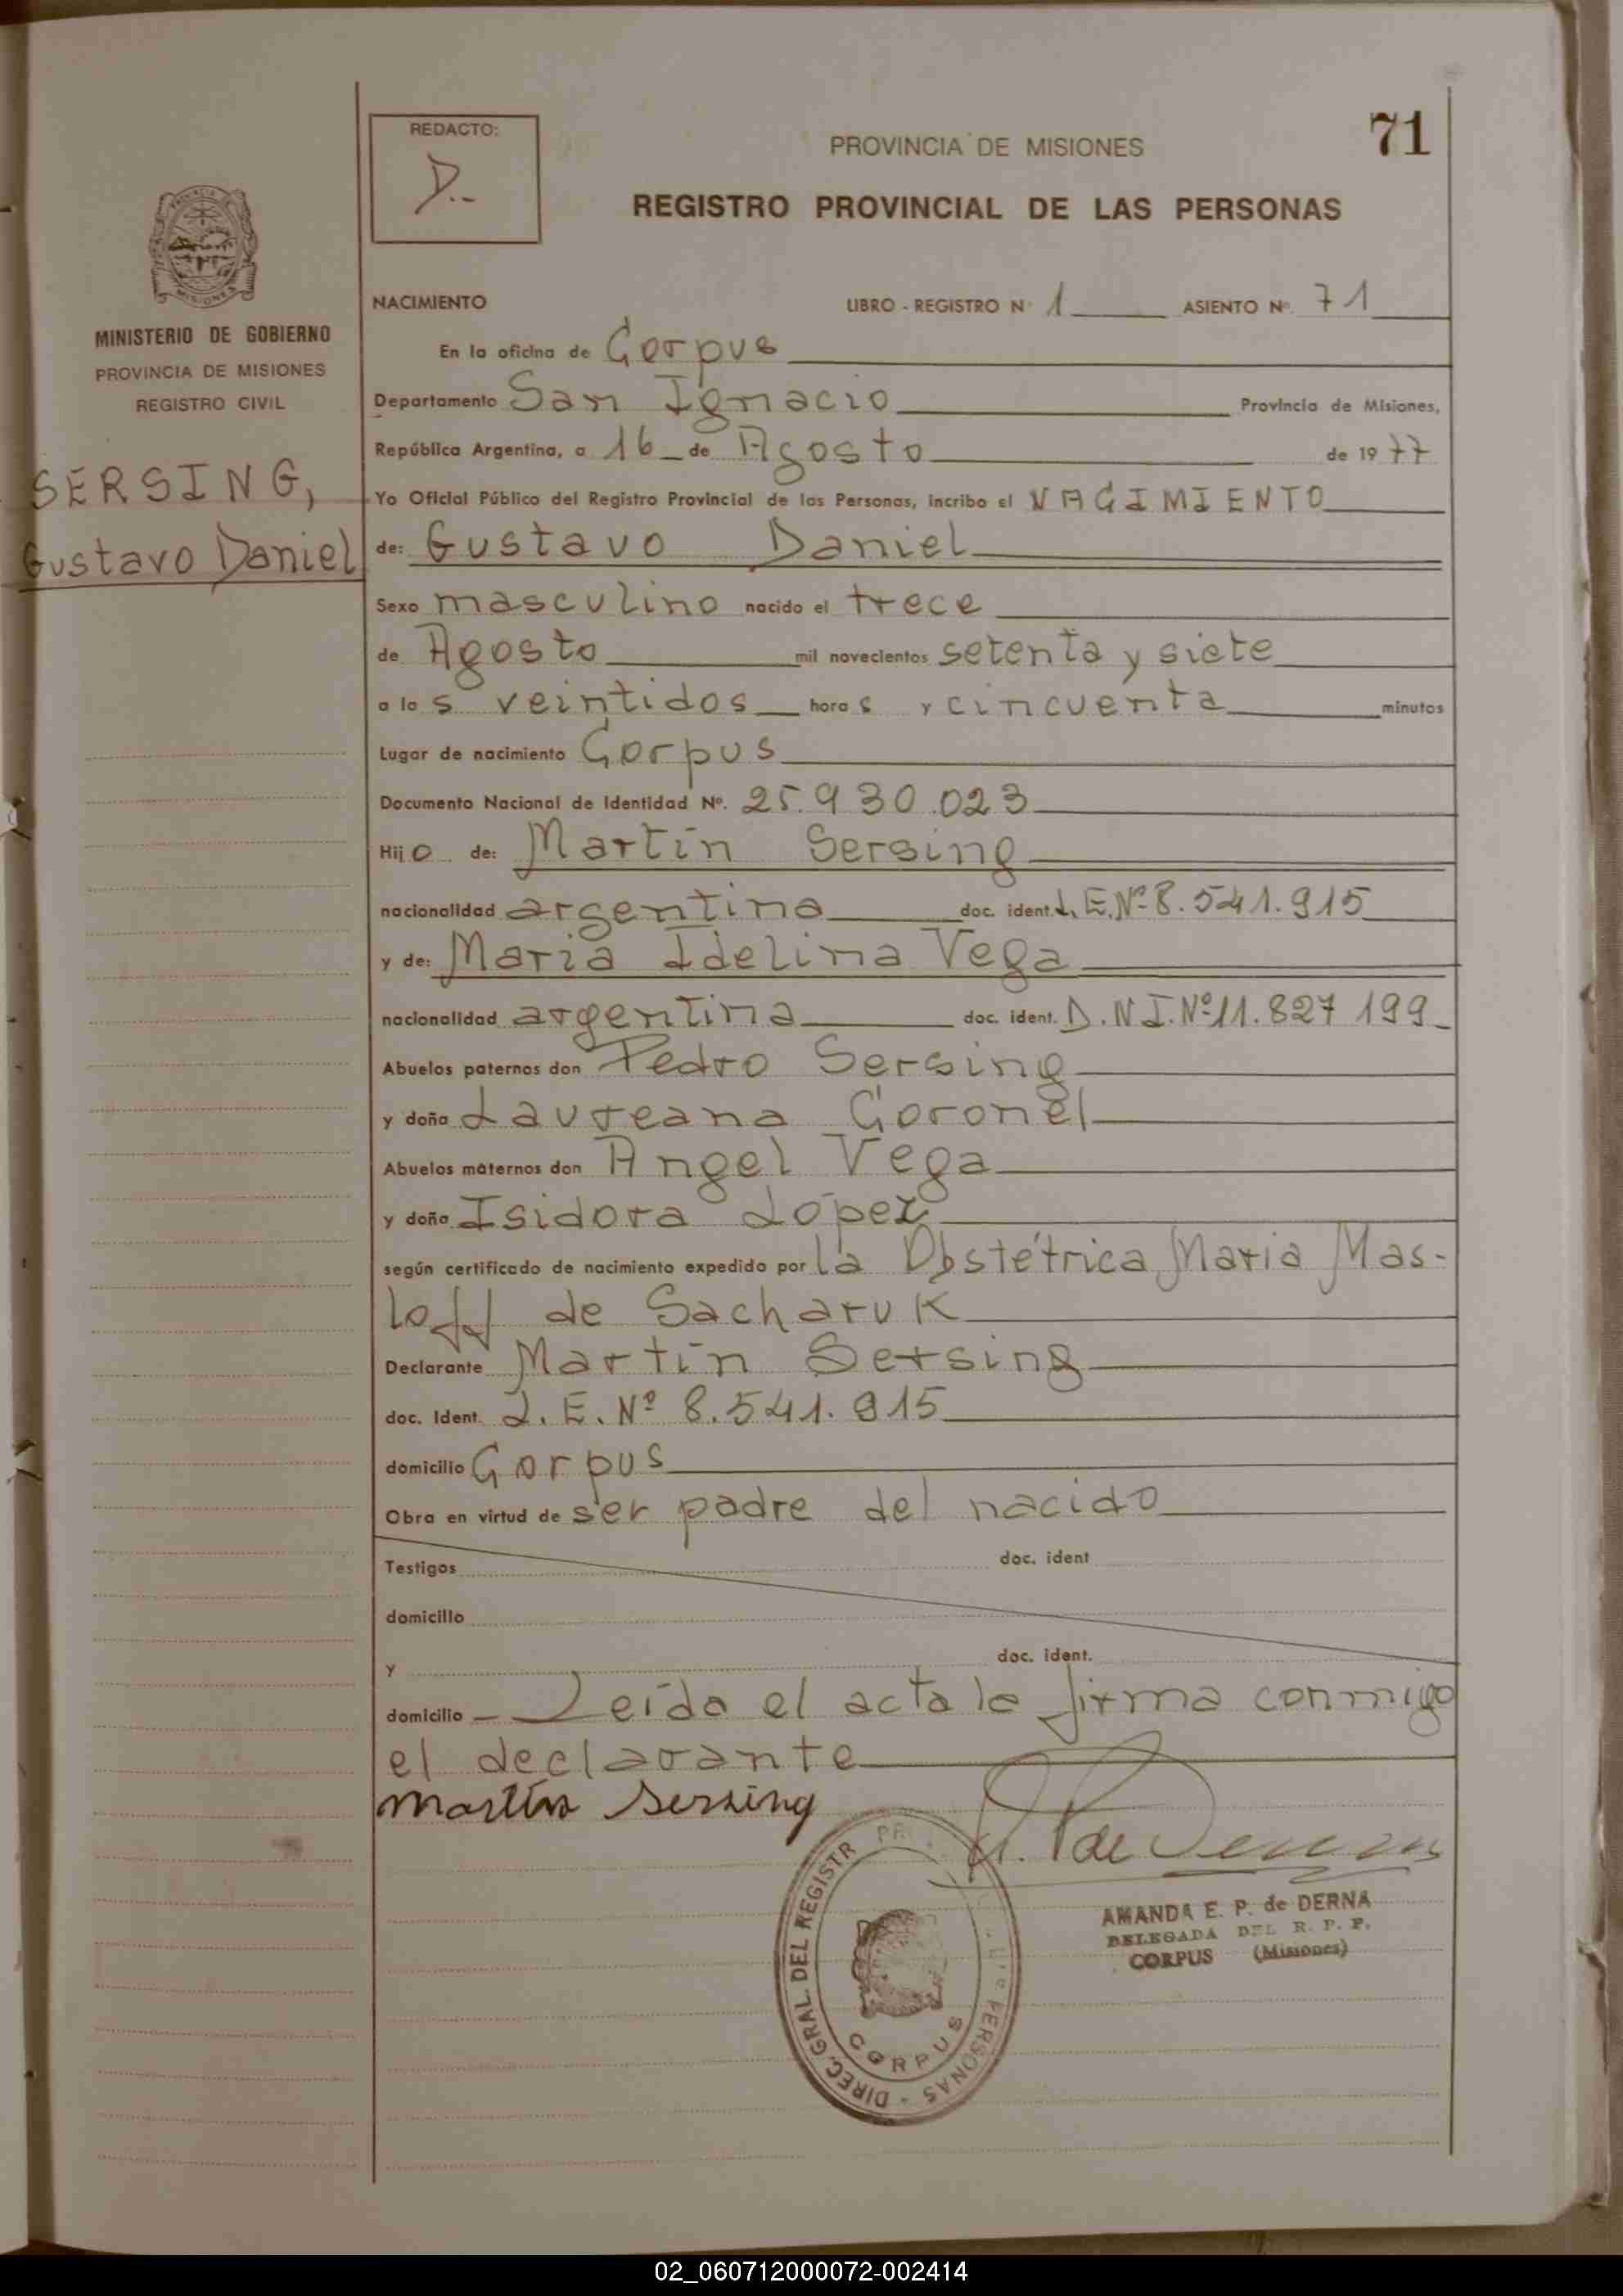 71
REDACTO:
D.-
PROVINCIA DE MISIONES
REGISTRO PROVINCIAL DE LAS PERSONAS
MISIONES
MINISTERIO DE GOBIERNO
PROVINCIA DE MISIONES
REGISTRO CIVIL
SERSING,
Gustavo Daniel
NACIMIENTO LIBRO - REGISTRO Nº 1 ASIENTO Nº. 71
En la oficina de Corpus
Departamento San Ignacio Provincia de Misiones,
República Argentina, a 16 de Agosto de 1977
Yo Oficial Público del Registro Provincial de las Personas, incribo el NACIMIENTO
de: Gustavo Daniel
Sexo masculino nacido el trece
de Agosto mil novecientos setenta y siete
a las veintidos horas y cincuenta minutos
Lugar de nacimiento Corpus
Documento Nacional de Identidad Nº. 25.930.023
Hijo de: Martín Sersing
nacionalidad argentina doc. ident. L.E.Nº 8.541.915
y de: Maria Idelina Vega
nacionalidad argentina doc. ident. D.N.I.Nº 11.827 199
Abuelos paternos don Pedro Sersing
y doña Laureana Coronel
Abuelos maternos don Angel Vega
y doña Isidora López
según certificado de nacimiento expedido por la Obstétrica Maria Mas-
loff de Sacharuk
Declarante Martín Sersing
doc. Ident. L.E. Nº 8.541.915
domicilio Corpus
Obra en virtud de ser padre del nacido
Testigos doc. ident
domicilio
y doc. ident.
domicilio — Leída el acta la firma conmigo
el declarante
Martín Sersing
DIREC. GRAL. DEL REGISTR PERSONAS
CORPUS
AMANDA E. P. de DERNA
DELEGADA DEL R. P. P.
CORPUS (Misiones)
02_060712000072-002414